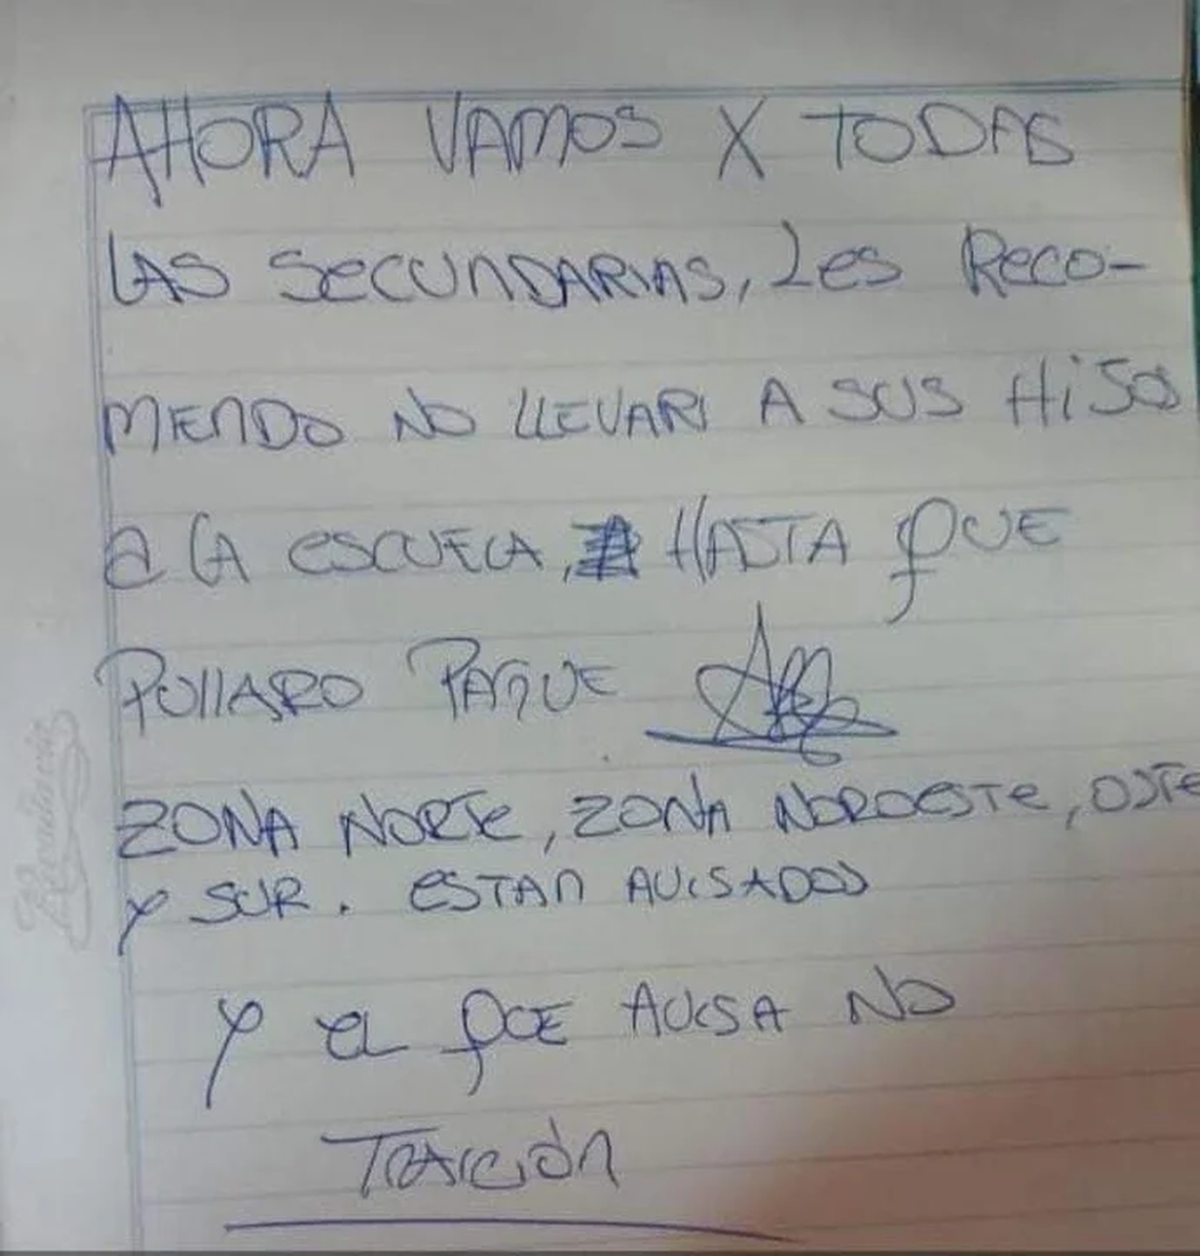 AHORA VAMOS X TODAS
LAS SECUNDARIAS, Les Reco-
MIENDO NO LLEVAR A SUS HiJOS
a LA escuela, HASTA QUE
PULLARO PAGUE
ZONA NORTE, ZONA NOROESTE, OSTE
Y SUR. ESTAN AVISADOS
Y EL QUE AVISA NO
TRAICIÓN
Rivadavia